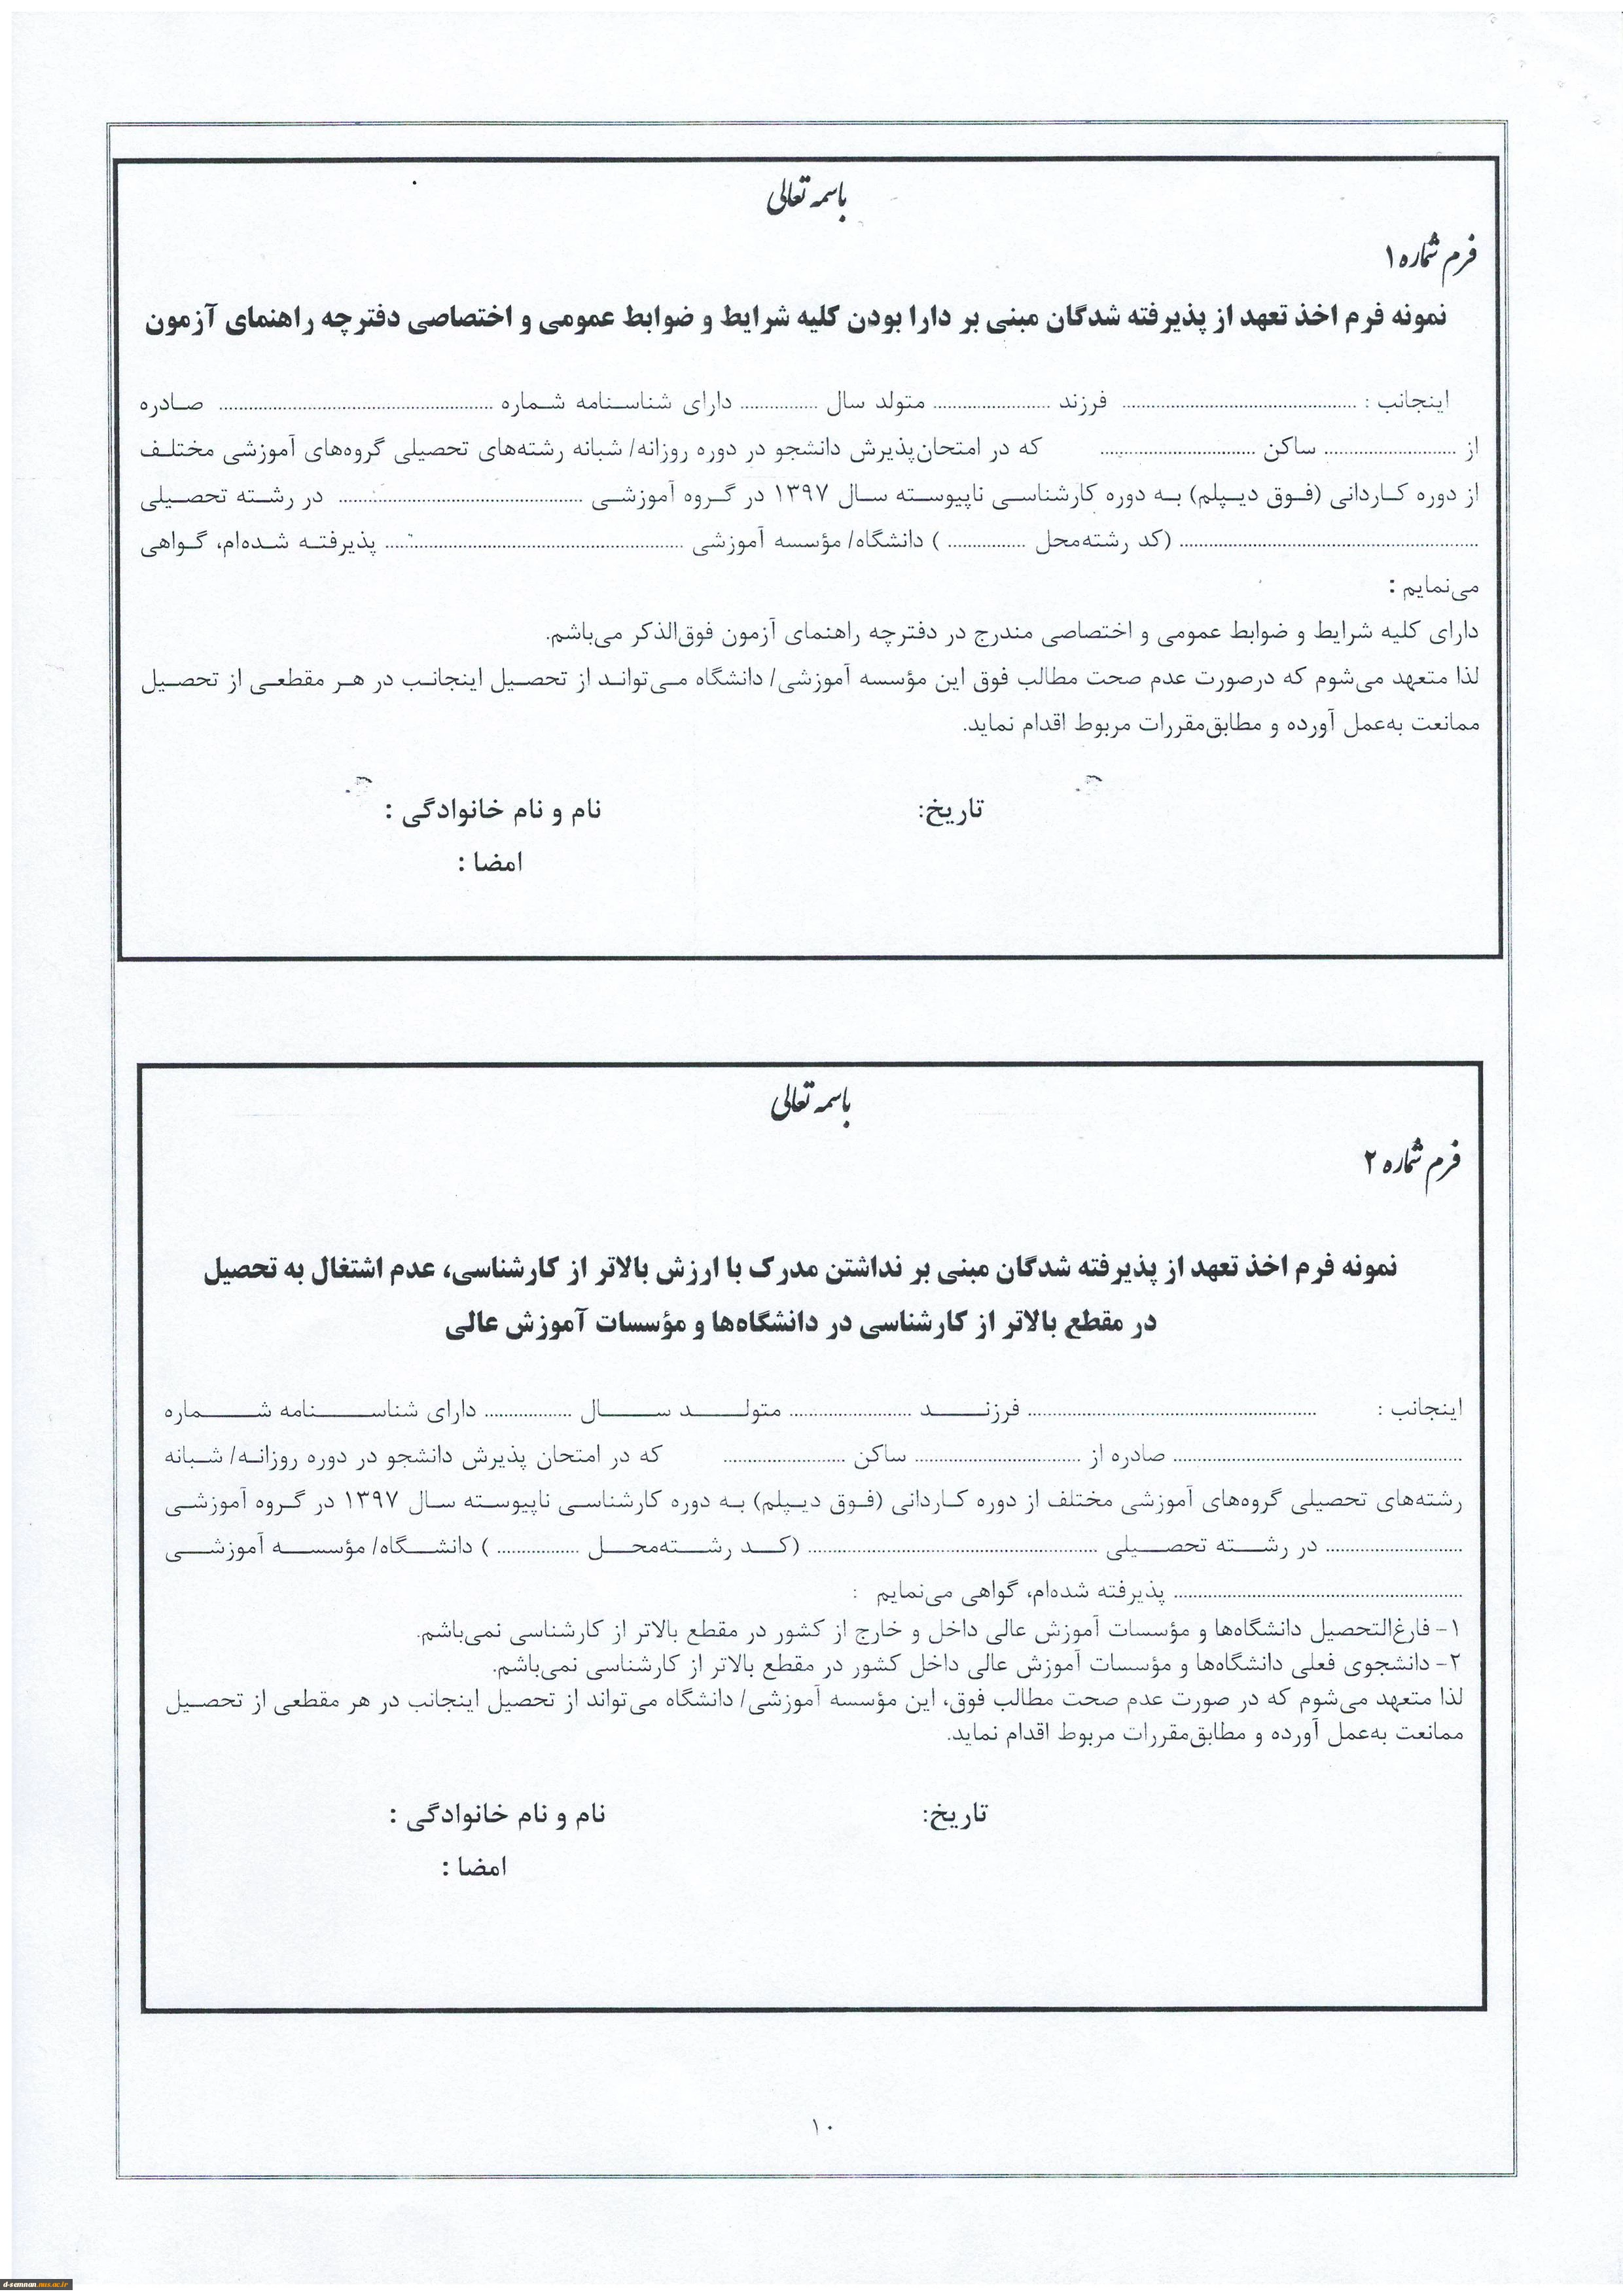 باسمه تعالی
فرم شماره ۱
نمونه فرم اخذ تعهد از پذیرفته شدگان مبنی بر دارا بودن کلیه شرایط و ضوابط عمومی و اختصاصی دفترچه راهنمای آزمون
اینجانب : ........................ فرزند ............ متولد سال ........ دارای شناسنامه شماره ............................ صادره
از ............ ساکن ................ که در امتحان‌پذیرش دانشجو در دوره روزانه/ شبانه رشته‌های تحصیلی گروه‌های آموزشی مختلف
از دوره کاردانی (فوق دیپلم) به دوره کارشناسی ناپیوسته سال ۱۳۹۷ در گروه آموزشی ........................ در رشته تحصیلی
.............................. (کد رشته‌محل ........ ) دانشگاه/ مؤسسه آموزشی .............................. پذیرفته شده‌ام، گواهی
می‌نمایم :
دارای کلیه شرایط و ضوابط عمومی و اختصاصی مندرج در دفترچه راهنمای آزمون فوق‌الذکر می‌باشم.
لذا متعهد می‌شوم که درصورت عدم صحت مطالب فوق این مؤسسه آموزشی/ دانشگاه می‌تواند از تحصیل اینجانب در هر مقطعی از تحصیل
ممانعت به‌عمل آورده و مطابق‌مقررات مربوط اقدام نماید.
تاریخ: نام و نام خانوادگی :
امضا :
باسمه تعالی
فرم شماره ۲
نمونه فرم اخذ تعهد از پذیرفته شدگان مبنی بر نداشتن مدرک با ارزش بالاتر از کارشناسی، عدم اشتغال به تحصیل
در مقطع بالاتر از کارشناسی در دانشگاه‌ها و مؤسسات آموزش عالی
اینجانب : .............................. فرزند ............ متولد سال ......... دارای شناسنامه شماره
.............................. صادره از ................. ساکن ............ که در امتحان پذیرش دانشجو در دوره روزانه/ شبانه
رشته‌های تحصیلی گروه‌های آموزشی مختلف از دوره کاردانی (فوق دیپلم) به دوره کارشناسی ناپیوسته سال ۱۳۹۷ در گروه آموزشی
.............. در رشته تحصیلی .............................. (کد رشته‌محل ........ ) دانشگاه/ مؤسسه آموزشی
.............................. پذیرفته شده‌ام، گواهی می‌نمایم :
۱- فارغ‌التحصیل دانشگاه‌ها و مؤسسات آموزش عالی داخل و خارج از کشور در مقطع بالاتر از کارشناسی نمی‌باشم.
۲- دانشجوی فعلی دانشگاه‌ها و مؤسسات آموزش عالی داخل کشور در مقطع بالاتر از کارشناسی نمی‌باشم.
لذا متعهد می‌شوم که در صورت عدم صحت مطالب فوق، این مؤسسه آموزشی/ دانشگاه می‌تواند از تحصیل اینجانب در هر مقطعی از تحصیل
ممانعت به‌عمل آورده و مطابق‌مقررات مربوط اقدام نماید.
تاریخ: نام و نام خانوادگی :
امضا :
۱۰
d-semnan.nus.ac.ir